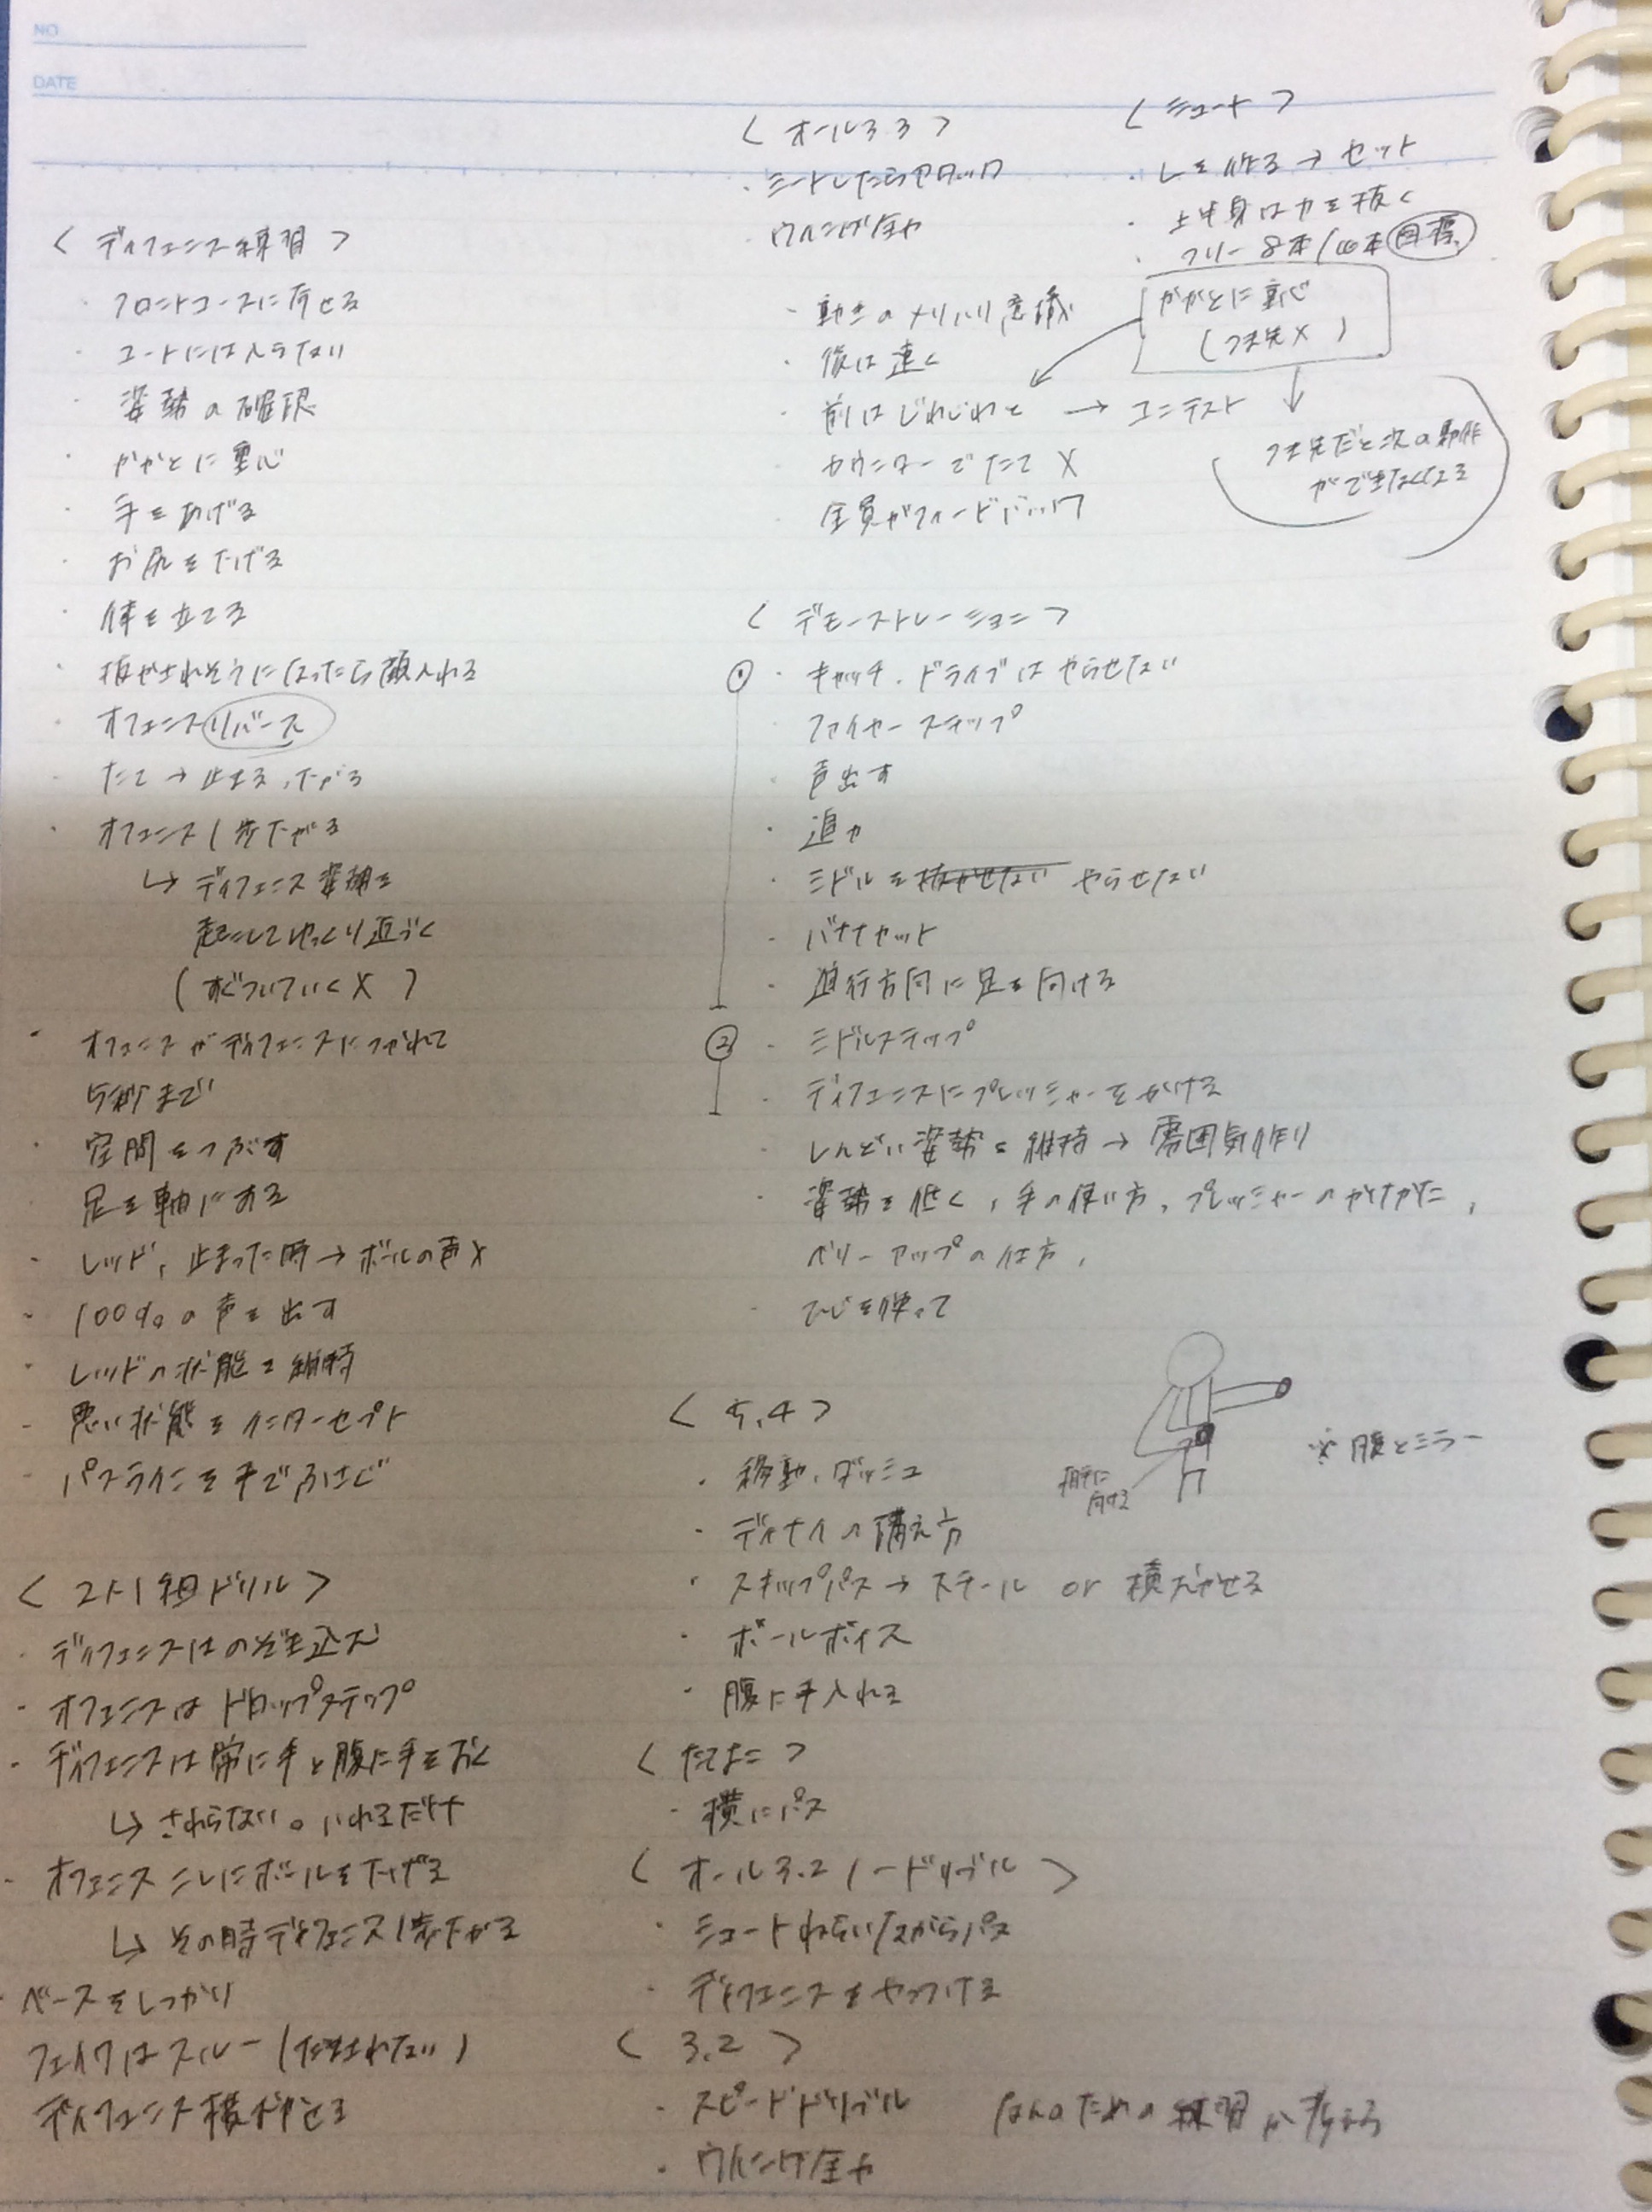 NO
DATE
< ディフェンス練習 >
・フロントコースに寄せる
・コートには入らない
・姿勢の確認
・かかとに重心
・手をあげる
・お尻を下げる
・体を立てる
・抜かされそうになったら顔入れる
・オフェンスリバース
・たて→止まる、下がる
・オフェンス1歩下がる
↳ ディフェンス姿勢を
起こしてゆっくり近づく
(すぐついていく×)
・オフェンスがディフェンスにつかれて
5秒まで
・空間をつぶす
・足を軸にする
・レッド、止まった時→ボールの声×
・100%の声を出す
・レッドの状態を維持
・悪い状態をインターセプト
・パスラインを手でふせぐ
< 2人1組ドリル >
・ディフェンスはのぞき込む
・オフェンスはドロップステップ
・ディフェンスは前に手と腹に手をおく
↳ さわらない。いれるだけ
・オフェンスこしにボールを下げる
↳ その時ディフェンス1歩下がる
・ベースをしっかり
フェイクはスルー(だまされない)
ディフェンス横おかせる
< オール33 >
・ミートしたらアタック
・ウィング全力
・動きのメリハリ意識
・後は速く
・前はじわじわと → コンテスト
・カウンターでたて×
・全員がフィードバック
< シュート >
・レを作る → セット
・上半身は力を抜く
・フリー8本/10本 目標
かかとに重心
(つま先×)
つま先だと次の動作
ができなくなる
< デモーストレーション >
① ・キャッチ、ドライブはやらせない
ファイヤーステップ
・声出す
・追力
・ミドルを抜かせない やらせない
・バナナカット
・進行方向に足を向ける
② ・ミドルステップ
・ディフェンスにプレッシャーをかける
・しんどい姿勢を維持→雰囲気作り
・姿勢を低く、手の使い方、プレッシャーのかけかた、
ベリーアップの仕方、
・ひじを使って
< 5.4 >
・移動、ダッシュ
・ディナイの構え方
・スキップパス→スチール or 横おかせる
・ボールボイス
・腹に手入れる
相手に
向ける
※ 腹とミラー
< たてよこ >
・横にパス
< オール3.2 ノードリブル >
・シュートねらいながらパス
・ディフェンスをやっつける
< 3.2 >
・スピードドリブル
・ウィング全力
なんのための練習か考える